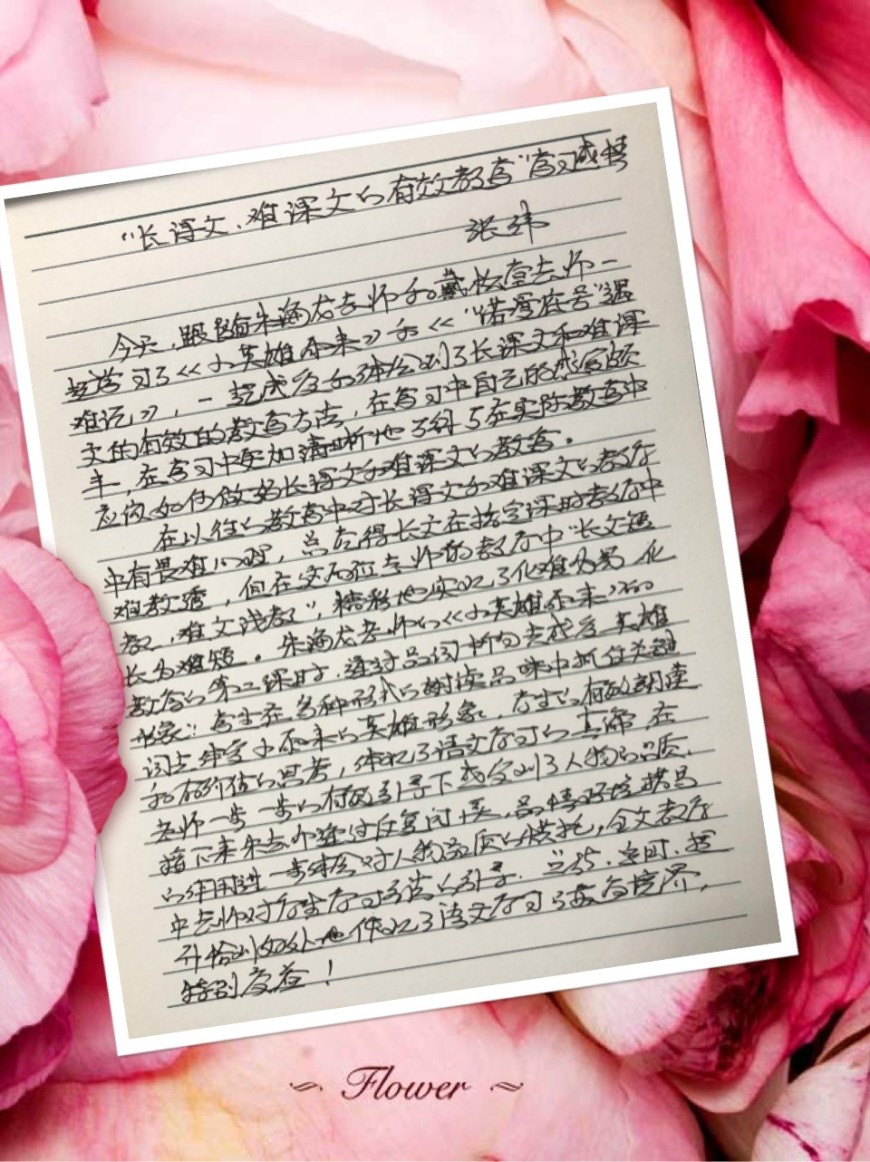 “长课文、难课文的有效教学”学习感悟
张纬
今天，跟随朱海龙老师和戴松堂老师一
起学习了《小英雄雨来》和《“诺曼底号”遇
难记》，一起感受和体会到了长课文和难课
文的有效的教学方法，在学习中自己的感受颇
丰，在学习中更加清晰地了解了在实际教学中
应该如何做好长课文和难课文的教学。
在以往的教学中对长课文和难课文的教学
中有畏难心理，总觉得长文在规定课时教学中
难教透，但在两位老师的教学中“长文短
教，难文浅教”，精彩地实现了化难为易 化
长为短。朱海龙老师的《小英雄雨来》
教学的第二课时，通过品词析句去感受英雄
形象；学生在多种形式的朗读品味中抓住关键
词去体会小雨来的英雄形象，学生的有效朗读
和有价值的思考，体现了语文学习的真谛，在
老师一步一步的有效引导下感受到了人物的品质，
接下来朱老师通过反复问读，品悟环境描写
的作用进一步体会对人物品质的衬托，全文教学
中老师对学生学习方法的引导、总结、运用、提
升恰到好处地体现了语文学习的最高境界，
特别受益！
Flower